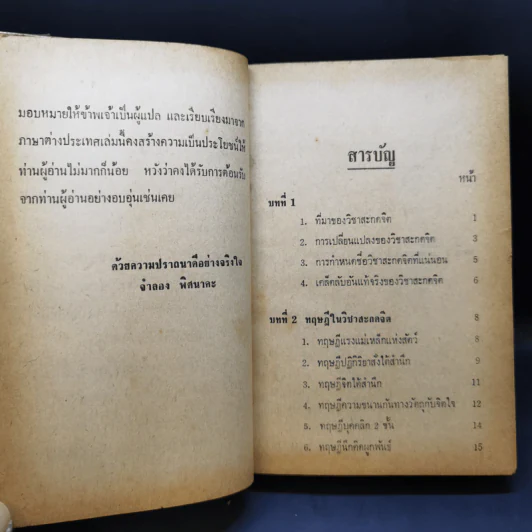 มอบหมายให้ข้าพเจ้าเป็นผู้แปล และเรียบเรียงมาจาก
ภาษาต่างประเทศเล่มนี้คงสร้างความเป็นประโยชน์ให้
ท่านผู้อ่านไม่มากก็น้อย หวังว่าคงได้รับการต้อนรับ
จากท่านผู้อ่านอย่างอบอุ่นเช่นเคย
ด้วยความปรารถนาดีอย่างจริงใจ
จำลอง พิศนาคะ
สารบัญ
หน้า
บทที่ 1
1. ที่มาของวิชาสะกดจิต 1
2. การเปลี่ยนแปลงของวิชาสะกดจิต 3
3. การกำหนดชื่อวิชาสะกดจิตที่แน่นอน 5
4. เคล็ดลับอันแท้จริงของวิชาสะกดจิต 6
บทที่ 2 ทฤษฎีในวิชาสะกดจิต 8
1. ทฤษฎีแรงแม่เหล็กแห่งสัตว์ 8
2. ทฤษฎีปฏิกิริยาสั่งใต้สำนึก 9
3. ทฤษฎีจิตใต้สำนึก 11
4. ทฤษฎีความขนานกันทางวัตถุกับจิตใจ 12
5. ทฤษฎีบุคคลิก 2 ชั้น 14
6. ทฤษฎีนึกคิดผูกพันธ์ 15